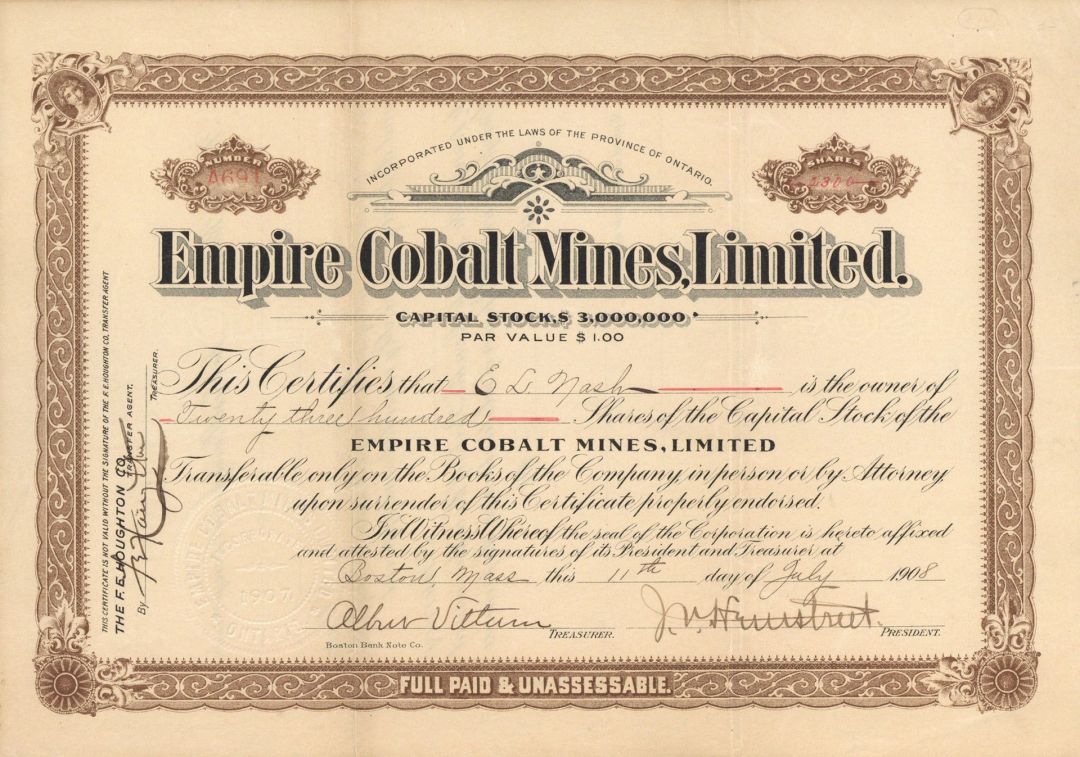 INCORPORATED UNDER THE LAWS OF THE PROVINCE OF ONTARIO.
NUMBER
A691
SHARES
2300
Empire Cobalt Mines, Limited.
CAPITAL STOCK, $ 3,000,000
PAR VALUE $ 1.00
This Certifies that E L Nash is the owner of
Twenty three hundred Shares of the Capital Stock of the
EMPIRE COBALT MINES, LIMITED
Transferable only on the Books of the Company in person or by Attorney
upon surrender of this Certificate properly endorsed.
In Witness Whereof the seal of the Corporation is hereto affixed
and attested by the signatures of its President and Treasurer at
Boston, Mass this 11th day of July 1908
Albert Vittum TREASURER.
J. V. Hemstreet. PRESIDENT.
Boston Bank Note Co.
FULL PAID & UNASSESSABLE.
THIS CERTIFICATE IS NOT VALID WITHOUT THE SIGNATURE OF THE F. E. HOUGHTON CO, TRANSFER AGENT
THE F. E. HOUGHTON CO.
TRANSFER AGENT.
By
TREASURER.
INCORPORATED
1907
ONTARIO